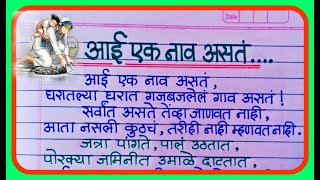 Date
आई एक नाव असतं....
आई एक नाव असतं,
घरातल्या घरात गजबजलेलं गाव असतं!
सर्वात असते तेंव्हा जाणवत नाही,
आता नसली कुठंच, तरीही नाही म्हणवत नाही.
जत्रा पांगते, पालं उठतात,
पोरक्या जमिनीत उमाळे दाटतात,